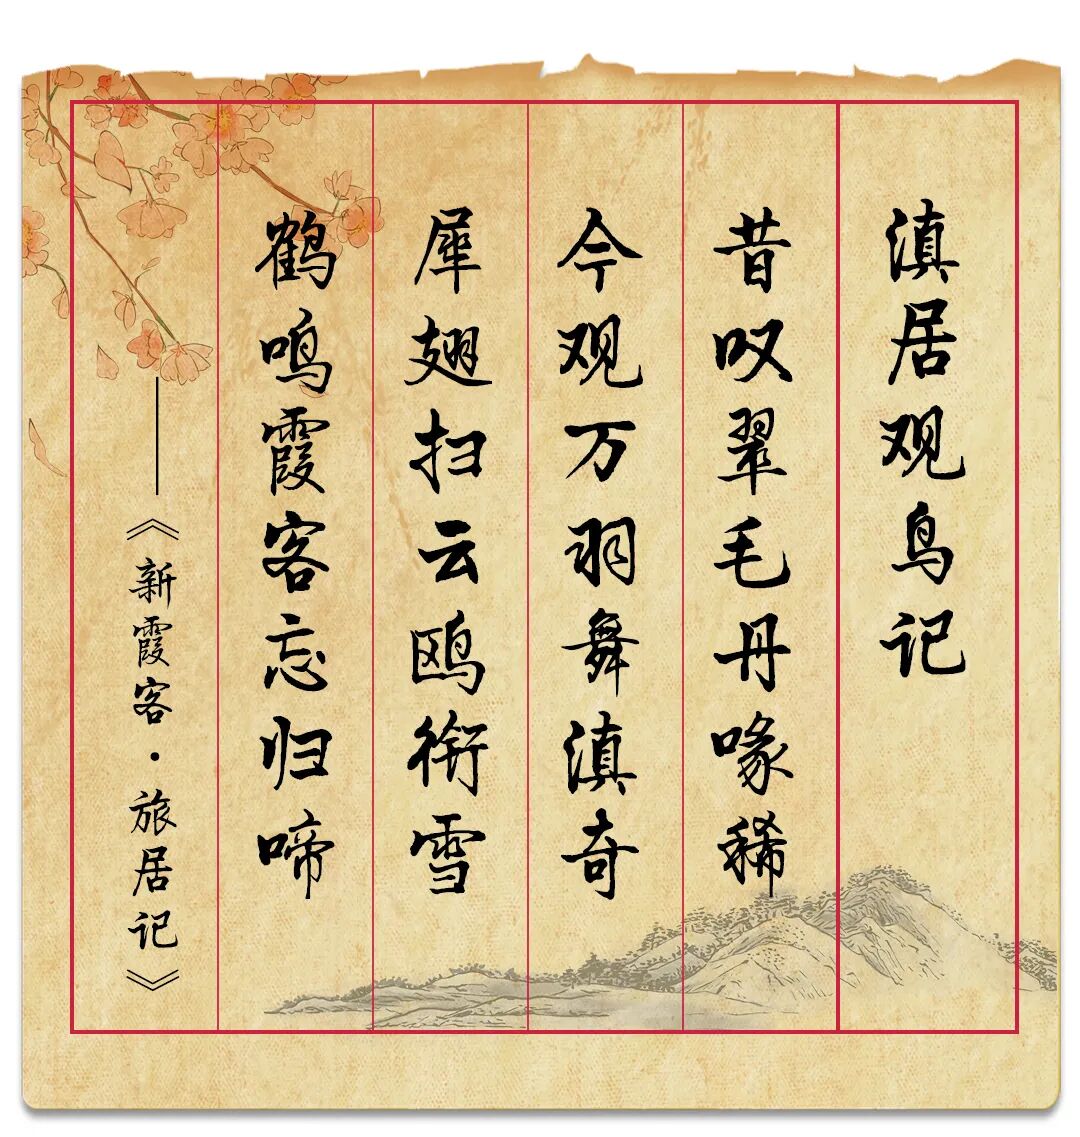 滇居观鸟记
昔叹翠毛丹喙稀
今观万羽舞滇奇
犀翅扫云鸥衔雪
鹤鸣霞客忘归啼
——《新霞客·旅居记》